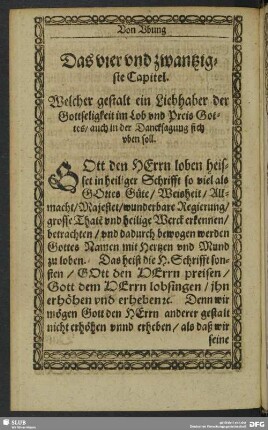 Von Vbung
Das vier vnd zwantzig-
ste Capitel.
Welcher gestalt ein Liebhaber der
Gottseligkeit im Lob vnd Preis Got-
tes/ auch in der Dancksagung sich
vben soll.
GOtt den HErrn loben heis-
set in heil'ger Schrifft so viel als
GOttes Güte/ Weisheit/ All-
macht/ Majestet/ wunderbare Regierung/
grosse Thatē vnd heilige Werck erkennen/
betrachten/ vnd dadurch bewogen werden
Gottes Namen mit Hertzen vnd Mund
zu loben. Das heist die H. Schrifft son-
sten/ GOtt den HErrn preisen/
Gott dem HErrn lobsingen/ ihn
erhöhen vnd erheben ꝛc. Denn wir
mögen Gott den HErrn anderer gestalt
nicht erhöhen vnnd erheben/ als daß wir
seine
SLUB
DFG